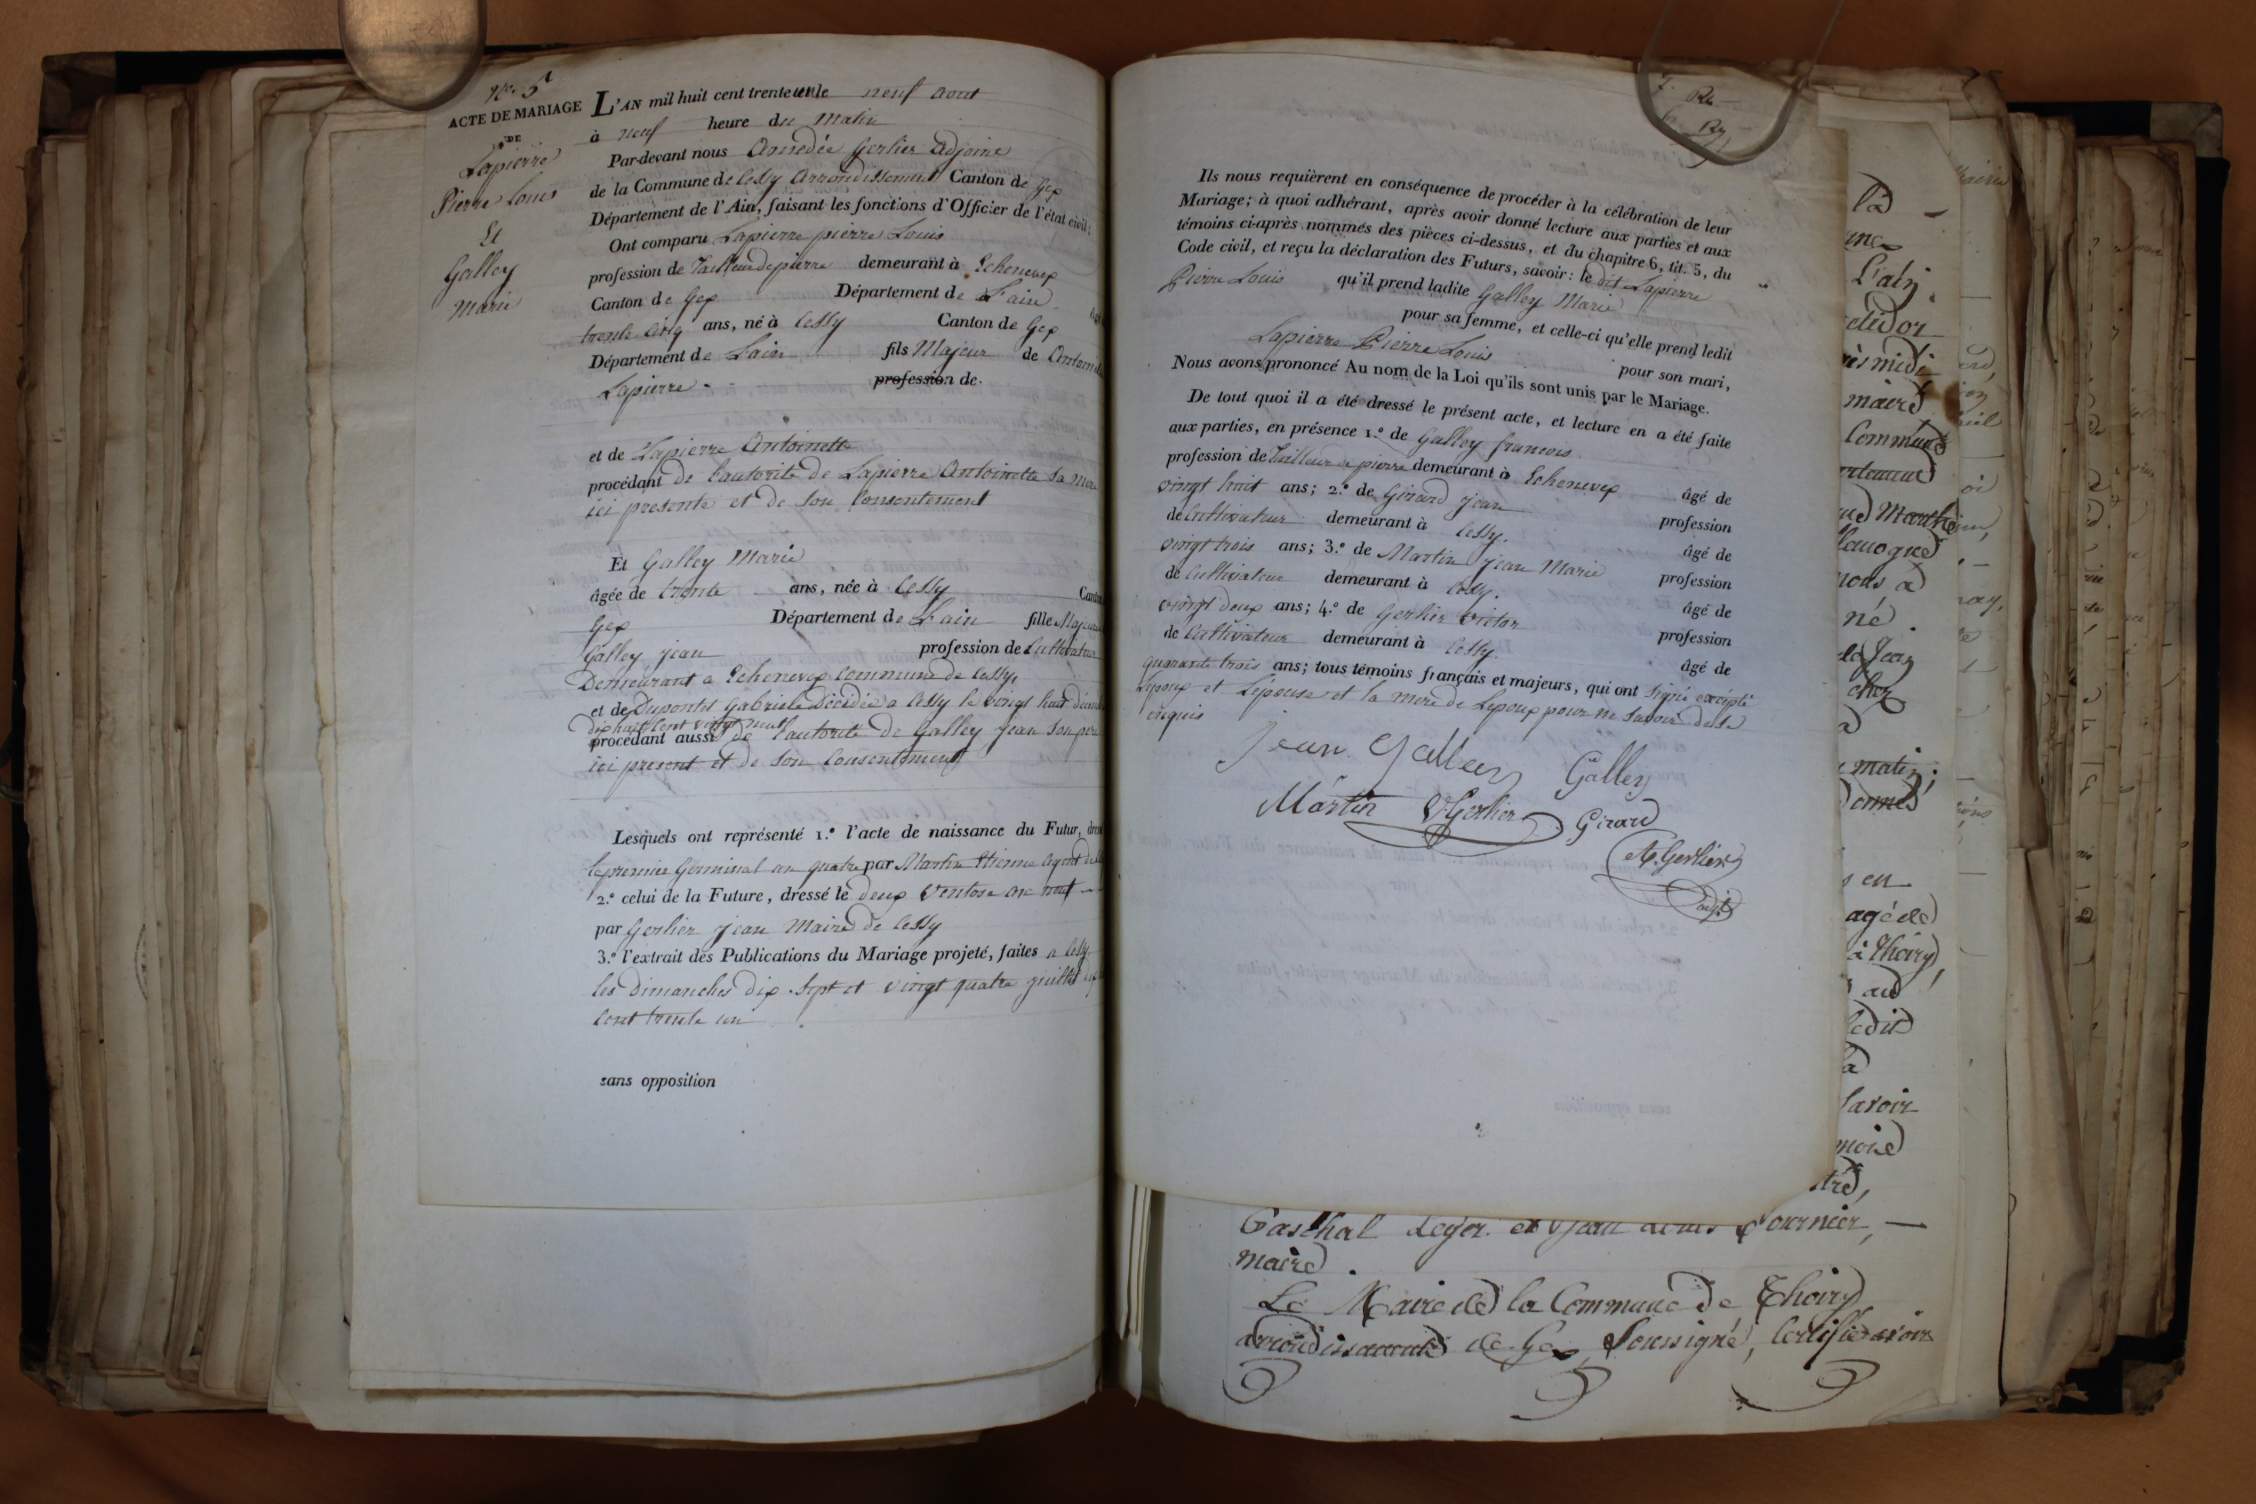 No. 5
ACTE DE MARIAGE
DE
Lapierre
Pierre Louis
Et
Galley
Marie
L'AN mil huit cent trente un le neuf aout
à neuf heure du matin
Par-devant nous Amedée Gerlier adjoint
de la Commune de Cessy arrondissement Canton de Gex
Département de l'Ain, faisant les fonctions d'Officier de l'état civil;
Ont comparu Lapierre pierre Louis
profession de Tailleur de pierre demeurant à Echenevex
Canton de Gex Département de L'ain
trente cinq ans, né à Cessy Canton de Gex
Département de Lain fils Majeur de Antoine
Lapierre profession de
et de Lapierre Antoinette
procédant de l'autorité de Lapierre Antoinette sa mere
ici presente et de son Consentement
Et Galley Marie
âgée de trente ans, née à Cessy Canton
Gex Département de L'ain fille Majeure
Galley jean profession de Cultivateur
Demeurant a Echenevex Commune de Cessy,
et de Dupontet Gabriele Décédée a Cessy le vingt huit
dix huit Cent vingt neuf
procédant aussi de l'autorité de Galley jean son père
ici present et de son Consentement
Lesquels ont représenté 1.º l'acte de naissance du Futur, dressé
le premier Germinal an quatre par Martin Etienne agent de
2.º celui de la Future, dressé le deux Ventose an neuf
par Gerlier jean Maire de Cessy
3.º l'extrait des Publications du Mariage projeté, faites a Cessy
les dimanches dix sept et vingt quatre juillet
Cent trente un
sans opposition
Ils nous requièrent en conséquence de procéder à la célébration de leur
Mariage; à quoi adhérant, après avoir donné lecture aux parties et aux
témoins ci-après nommés des pièces ci-dessus, et du chapitre 6, tit. 5, du
Code civil, et reçu la déclaration des Futurs, savoir: le dit Lapierre
Pierre Louis qu'il prend ladite Galley Marie
pour sa femme, et celle-ci qu'elle prend ledit
Lapierre Pierre Louis pour son mari,
Nous avons prononcé Au nom de la Loi qu'ils sont unis par le Mariage.
De tout quoi il a été dressé le présent acte, et lecture en a été faite
aux parties, en présence 1.º de Galley francois
profession de Tailleur de pierre demeurant à Echenevex âgé de
vingt huit ans; 2.º de Girard jean profession
de Cultivateur demeurant à Cessy. âgé de
vingt trois ans; 3.º de Martin jean Marie profession
de Cultivateur demeurant à Cessy. âgé de
vingt deux ans; 4.º de Gerlier Victor profession
de Cultivateur demeurant à Cessy. âgé de
quarante trois ans; tous témoins français et majeurs, qui ont signé excépté
Lepoux et Lépouse et la mere de Lepoux pour ne savoir de ce
enquis
jean Galley Galley
Martin V. Gerlier Girard
A. Gerlier
adjt
là
L'ain
maire
Commune
né
matin;
en
agé de
à Thoiry,
au
ledit
Savoir
Paschal Leger. et Jean Louis Fournier,
maire.
Le Maire de la Commune de Thoiry
arrondissement de Gex Soussigné, Certifie avoir